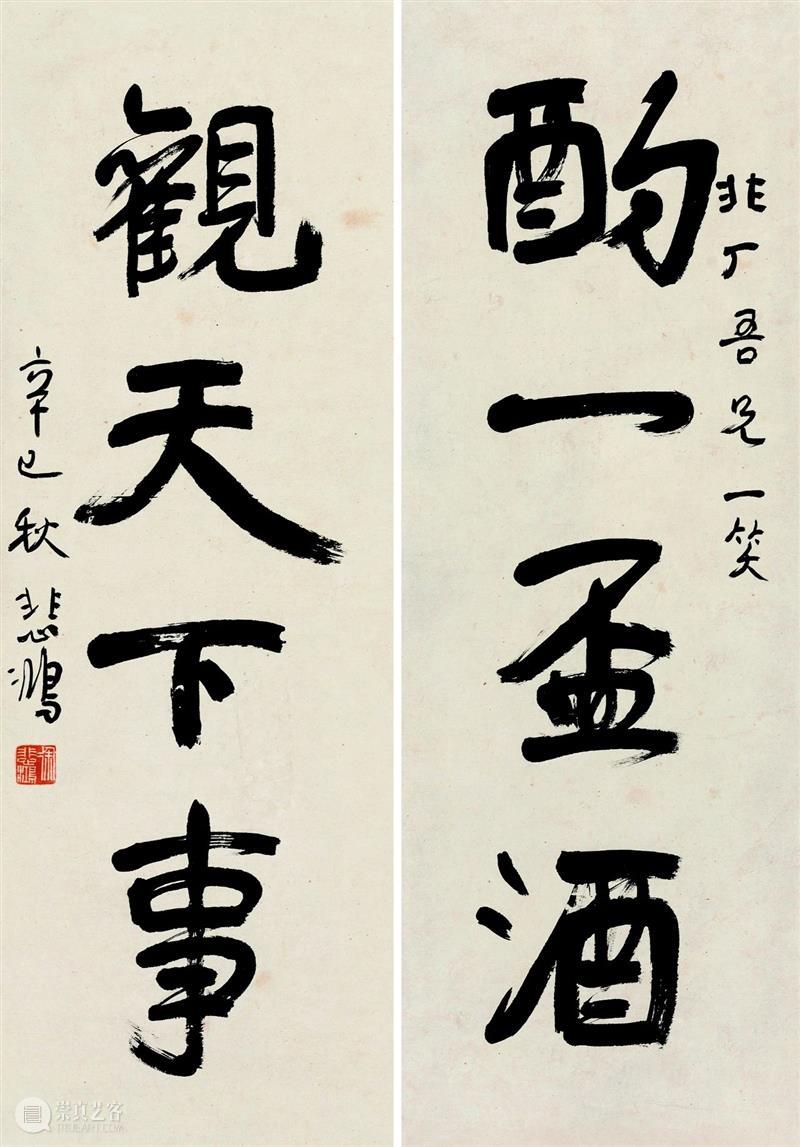 非丁吾兄一笑
酌一盃酒
觀天下事
辛巳秋 悲鴻
徐悲鴻
崇真艺客
TRUEART.COM